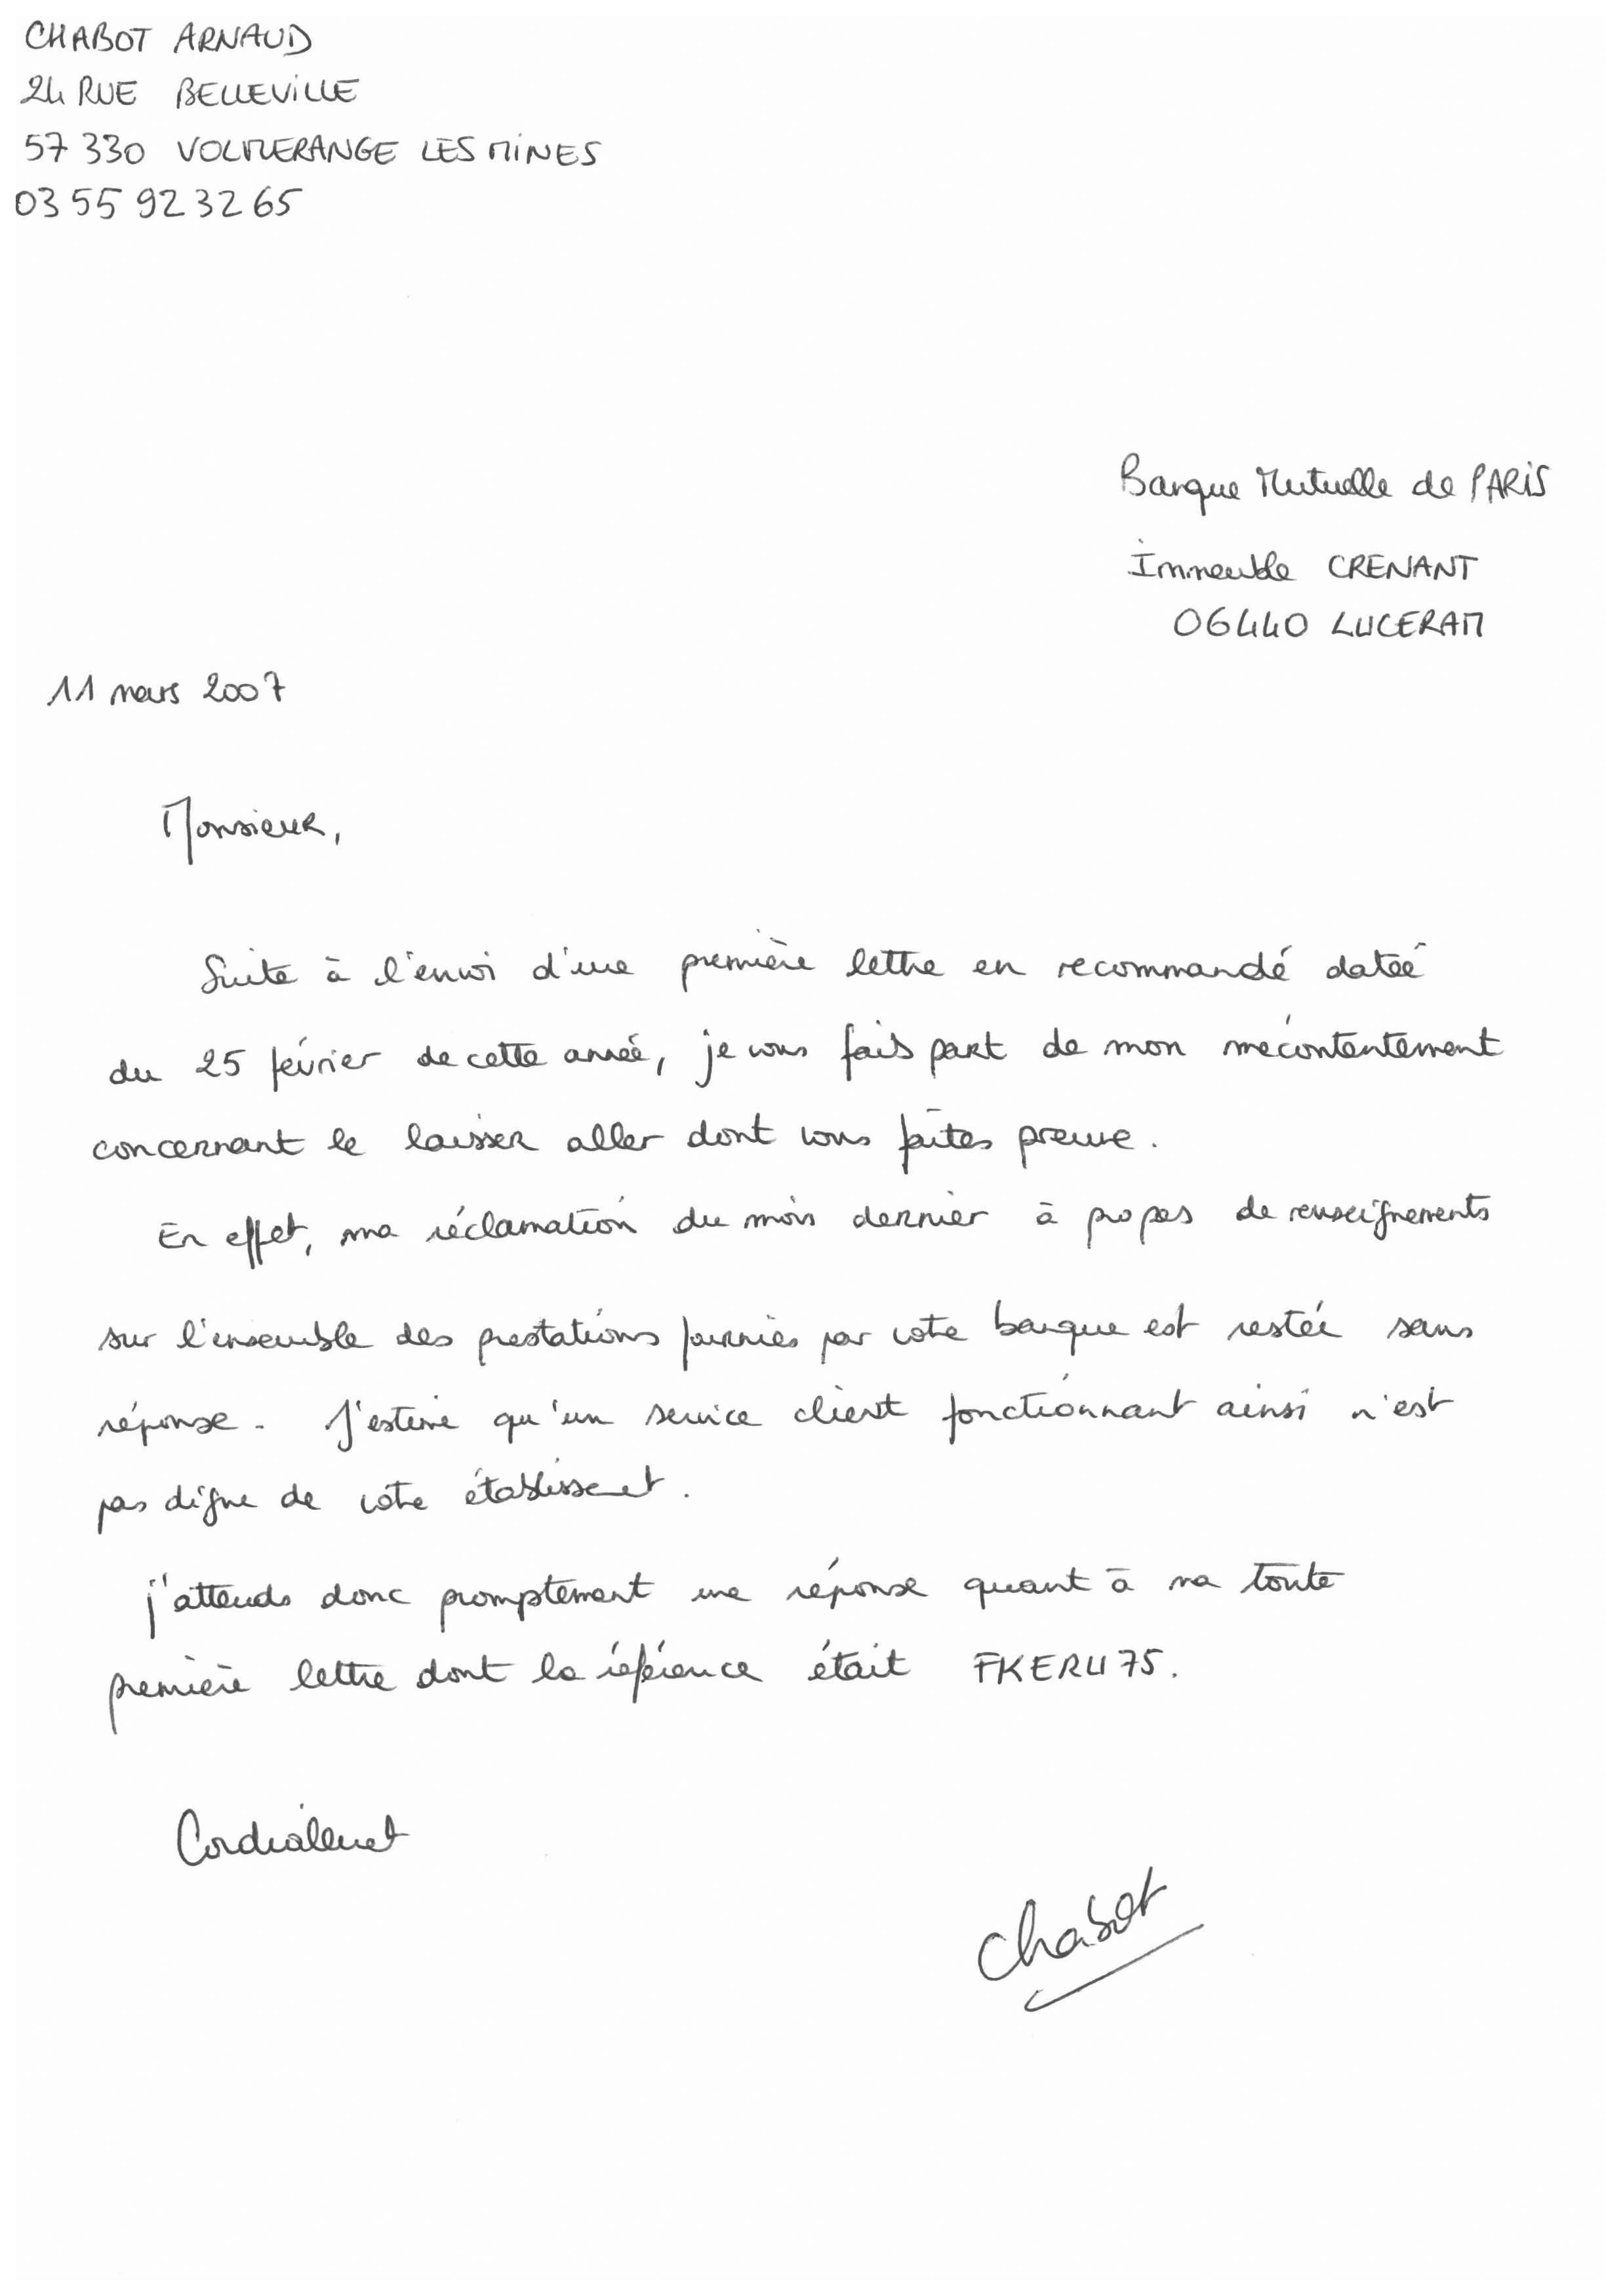 CHABOT ARNAUD
24 RUE BELLEVILLE
57 330 VOLMERANGE LES MINES
03 55 92 32 65
Banque Mutuelle de PARIS
Immeuble CRENANT
06440 LUCERAM
11 mars 2007
Monsieur,
Suite à l'envoi d'une première lettre en recommandé datée
du 25 février de cette année, je vous fais part de mon mécontentement
concernant le laisser aller dont vous faites preuve.
En effet, ma réclamation du mois dernier à propos de renseignements
sur l'ensemble des prestations fournies par votre banque est restée sans
réponse. J'estime qu'un service client fonctionnant ainsi n'est
pas digne de votre établissement.
j'attends donc promptement une réponse quant à ma toute
première lettre dont la référence était FKERU75.
Cordialement
Chabot